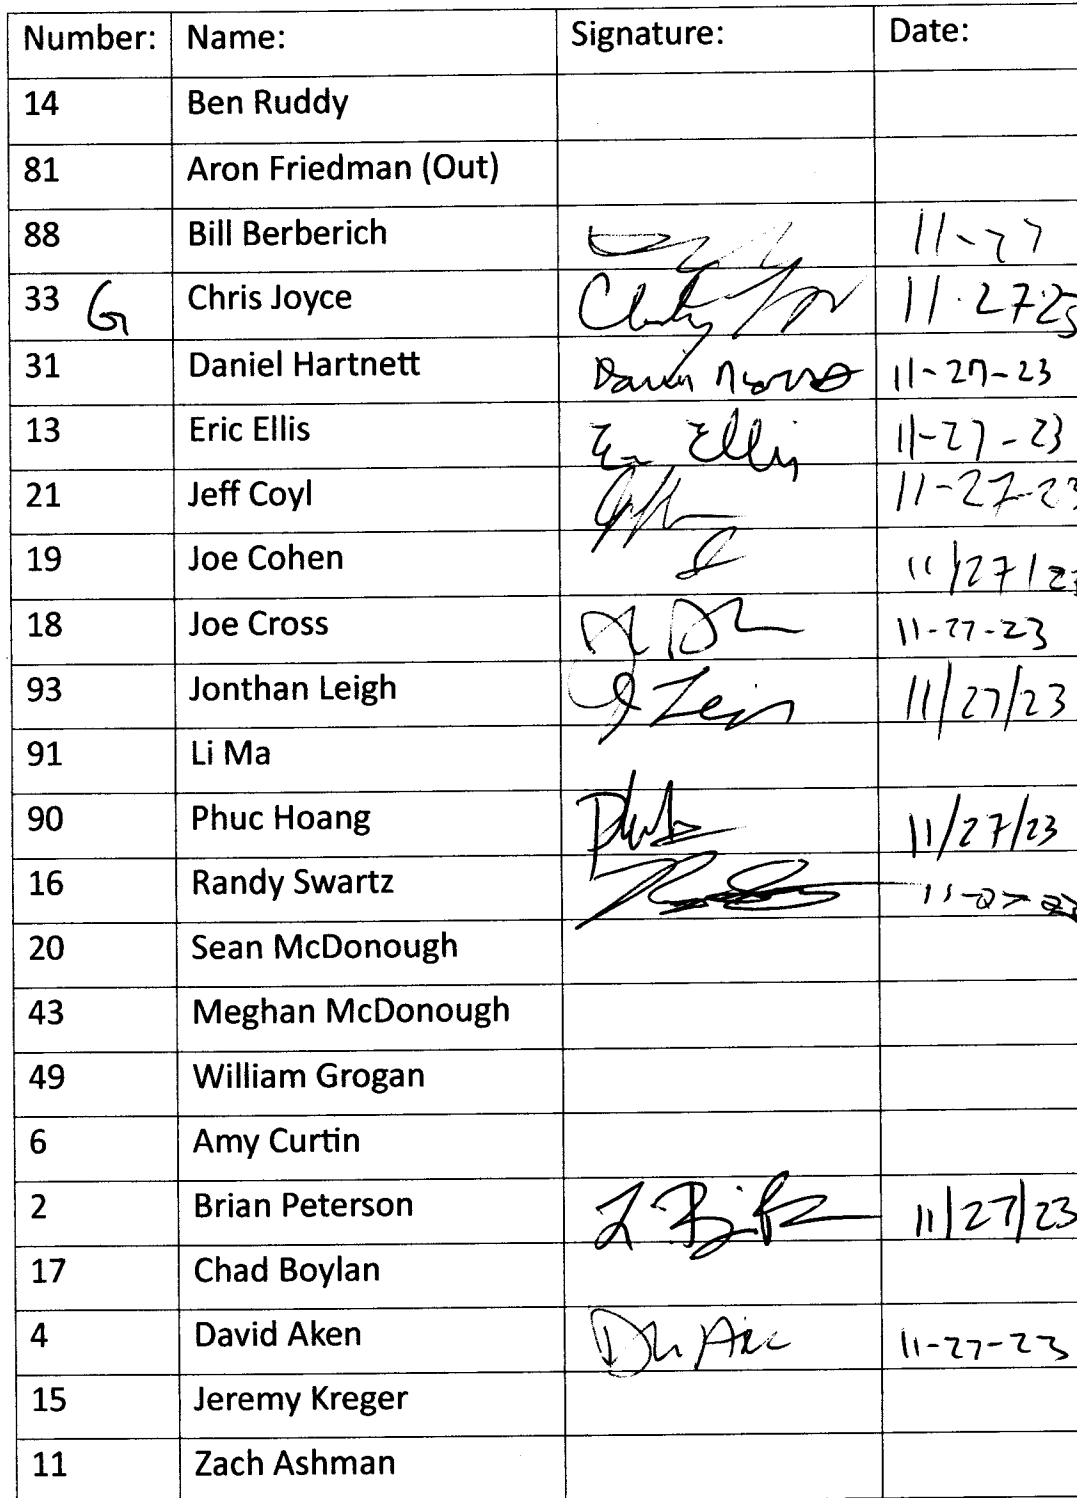 Number: Name: Signature: Date:
14 Ben Ruddy
81 Aron Friedman (Out)
88 Bill Berberich 11-27
33 G Chris Joyce 11.27.23
31 Daniel Hartnett 11-27-23
13 Eric Ellis Ellis 11-27-23
21 Jeff Coyl 11-27-23
19 Joe Cohen 11/27/23
18 Joe Cross 11-27-23
93 Jonthan Leigh 11/27/23
91 Li Ma
90 Phuc Hoang 11/27/23
16 Randy Swartz 11-27-23
20 Sean McDonough
43 Meghan McDonough
49 William Grogan
6 Amy Curtin
2 Brian Peterson 11/27/23
17 Chad Boylan
4 David Aken 11-27-23
15 Jeremy Kreger
11 Zach Ashman